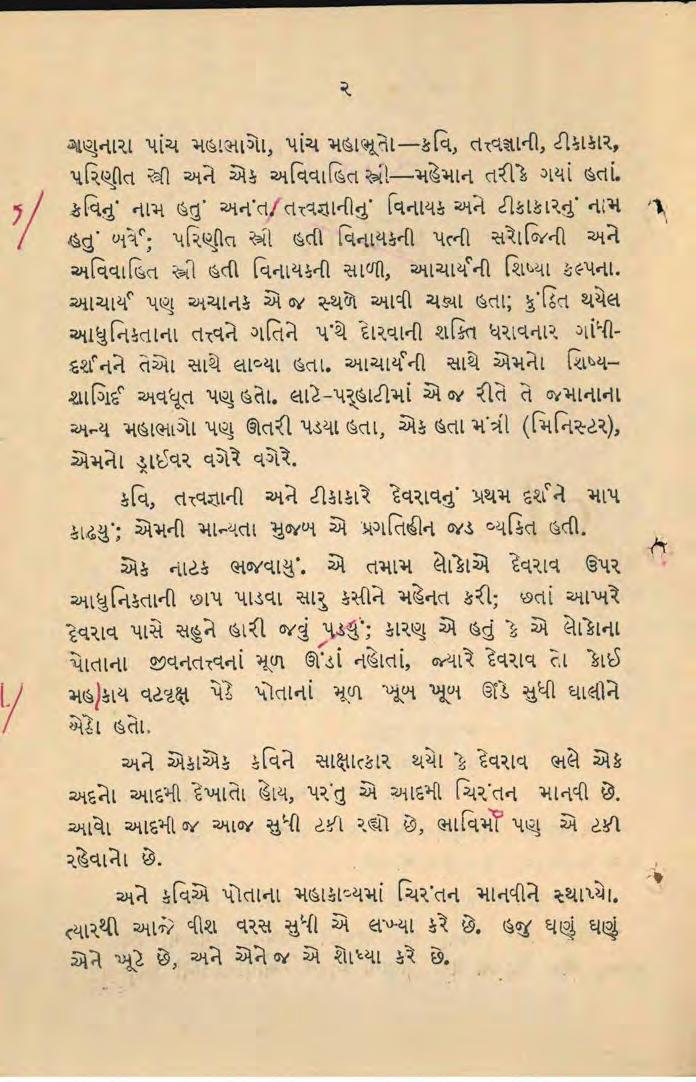 ૨
ગણનારા પાંચ મહાભાગો, પાંચ મહાભૂતો—કવિ, તત્ત્વજ્ઞાની, ટીકાકાર,
પરિણીત સ્ત્રી અને એક અવિવાહિત સ્ત્રી—મહેમાન તરીકે ગયાં હતાં.
કવિનું નામ હતું અનંત/ તત્ત્વજ્ઞાનીનું વિનાયક અને ટીકાકારનું નામ
હતું બર્ત્રે; પરિણીત સ્ત્રી હતી વિનાયકની પત્ની સરોજિની અને
અવિવાહિત સ્ત્રી હતી વિનાયકની સાળી, આચાર્યની શિષ્યા કલ્પના.
આચાર્ય પણ અચાનક એ જ સ્થળે આવી ચડ્યા હતા; કુંઠિત થયેલ
આધુનિકતાના તત્ત્વને ગતિને પંથે દોરવાની શક્તિ ધરાવનાર ગાંધી-
દર્શનને તેઓ સાથે લાવ્યા હતા. આચાર્યની સાથે એમનો શિષ્ય–
શાગિર્દ અવધૂત પણ હતો. લાટે-પર્‌હાટીમાં એ જ રીતે તે જમાનાના
અન્ય મહાભાગો પણ ઊતરી પડયા હતા, એક હતા મંત્રી (મિનિસ્ટર),
એમનો ડ્રાઈવર વગેરે વગેરે.
કવિ, તત્ત્વજ્ઞાની અને ટીકાકારે દેવરાવનું પ્રથમ દર્શને માપ
કાઢયું; એમની માન્યતા મુજબ એ પ્રગતિહીન જડ વ્યકિત હતી.
એક નાટક ભજવાયું. એ તમામ લોકોએ દેવરાવ ઉપર
આધુનિકતાની છાપ પાડવા સારુ કસીને મહેનત કરી; છતાં આખરે
દેવરાવ પાસે સહુને હારી જવું પડયું; કારણ એ હતું કે એ લોકોના
પોતાના જીવનતત્ત્વનાં મૂળ ઊંડાં નહોતાં, જ્યારે દેવરાવ તો કોઈ
મહાકાય વટવૃક્ષ પેઠે પોતાનાં મૂળ ખૂબ ખૂબ ઊંડે સુધી ઘાલીને
બેઠો હતો.
અને એકાએક કવિને સાક્ષાત્કાર થયો કે દેવરાવ ભલે એક
અદનો આદમી દેખાતો હોય, પરંતુ એ આદમી ચિરંતન માનવી છે.
આવો આદમી જ આજ સુધી ટકી રહ્યો છે, ભાવિમાં પણ એ ટકી
રહેવાનો છે.
અને કવિએ પોતાના મહાકાવ્યમાં ચિરંતન માનવીને સ્થાપ્યો.
ત્યારથી આજે વીશ વરસ સુધી એ લખ્યા કરે છે. હજુ ઘણું ઘણું
એને ખૂટે છે, અને એને જ એ શોધ્યા કરે છે.